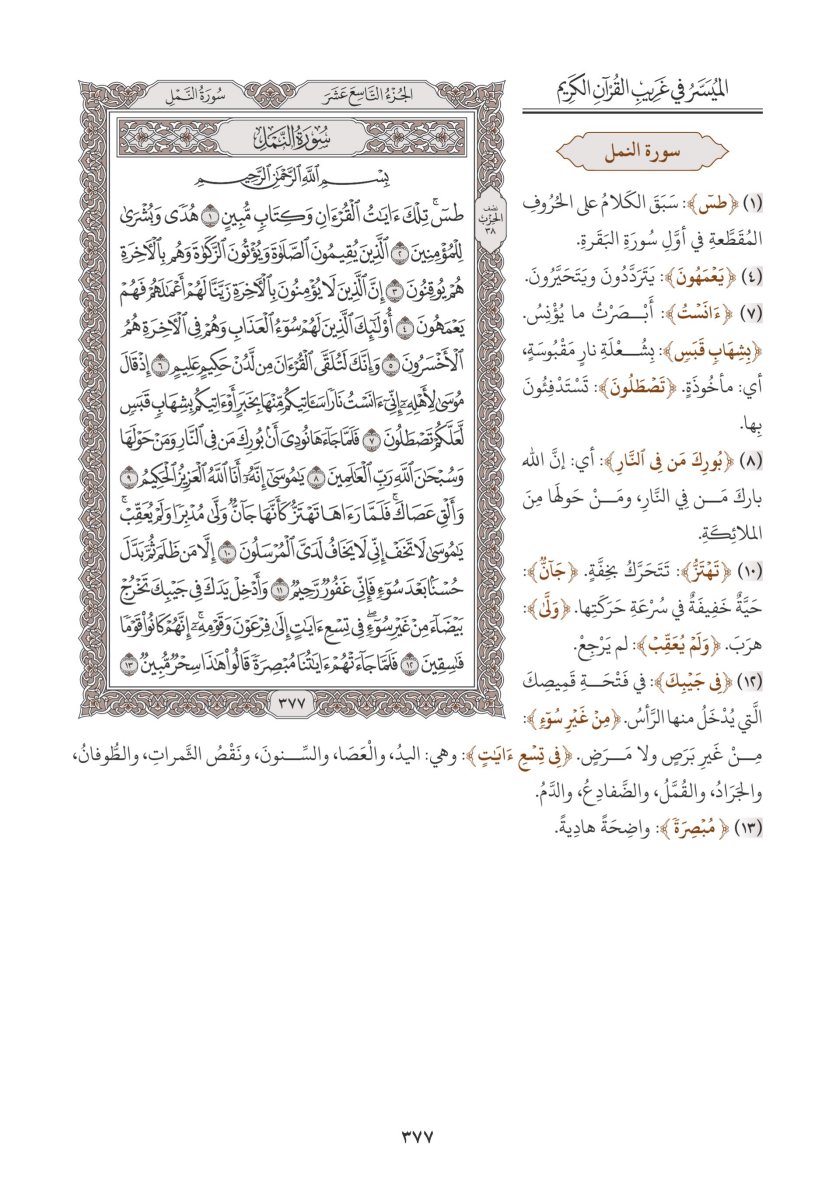 الميسر في غريب القرآن الكريم
الجزء التاسع عشر
سورة النمل
سورة النمل
بِسْمِ ٱللَّهِ ٱلرَّحْمَٰنِ ٱلرَّحِيمِ
طسٓۚ تِلْكَ ءَايَٰتُ ٱلْقُرْءَانِ وَكِتَابٍ مُّبِينٍ ١ هُدًى وَبُشْرَىٰ
لِلْمُؤْمِنِينَ ٢ ٱلَّذِينَ يُقِيمُونَ ٱلصَّلَوٰةَ وَيُؤْتُونَ ٱلزَّكَوٰةَ وَهُم بِٱلْءَاخِرَةِ
هُمْ يُوقِنُونَ ٣ إِنَّ ٱلَّذِينَ لَا يُؤْمِنُونَ بِٱلْءَاخِرَةِ زَيَّنَّا لَهُمْ أَعْمَٰلَهُمْ فَهُمْ
يَعْمَهُونَ ٤ أُوْلَٰٓئِكَ ٱلَّذِينَ لَهُمْ سُوٓءُ ٱلْعَذَابِ وَهُمْ فِى ٱلْءَاخِرَةِ هُمُ
ٱلْأَخْسَرُونَ ٥ وَإِنَّكَ لَتُلَقَّى ٱلْقُرْءَانَ مِن لَّدُنْ حَكِيمٍ عَلِيمٍ ٦ إِذْ قَالَ
مُوسَىٰ لِأَهْلِهِۦٓ إِنِّىٓ ءَانَسْتُ نَارًا سَـَٔاتِيكُم مِّنْهَا بِخَبَرٍ أَوْ ءَاتِيكُم بِشِهَابٍ قَبَسٍ
لَّعَلَّكُمْ تَصْطَلُونَ ٧ فَلَمَّا جَآءَهَا نُودِىَ أَنۢ بُورِكَ مَن فِى ٱلنَّارِ وَمَنْ حَوْلَهَا
وَسُبْحَٰنَ ٱللَّهِ رَبِّ ٱلْعَٰلَمِينَ ٨ يَٰمُوسَىٰٓ إِنَّهُۥٓ أَنَا ٱللَّهُ ٱلْعَزِيزُ ٱلْحَكِيمُ ٩
وَأَلْقِ عَصَاكَۚ فَلَمَّا رَءَاهَا تَهْتَزُّ كَأَنَّهَا جَآنٌّ وَلَّىٰ مُدْبِرًا وَلَمْ يُعَقِّبْۚ
يَٰمُوسَىٰ لَا تَخَفْ إِنِّى لَا يَخَافُ لَدَىَّ ٱلْمُرْسَلُونَ ١٠ إِلَّا مَن ظَلَمَ ثُمَّ بَدَّلَ
حُسْنًۢا بَعْدَ سُوٓءٍ فَإِنِّى غَفُورٌ رَّحِيمٌ ١١ وَأَدْخِلْ يَدَكَ فِى جَيْبِكَ تَخْرُجْ
بَيْضَآءَ مِنْ غَيْرِ سُوٓءٍۖ فِى تِسْعِ ءَايَٰتٍ إِلَىٰ فِرْعَوْنَ وَقَوْمِهِۦٓۚ إِنَّهُمْ كَانُوا۟ قَوْمًا
فَٰسِقِينَ ١٢ فَلَمَّا جَآءَتْهُمْ ءَايَٰتُنَا مُبْصِرَةً قَالُوا۟ هَٰذَا سِحْرٌ مُّبِينٌ ١٣
٣٧٧
نصف
الحزب
٣٨
سورة النمل
(١) ﴿طسٓ﴾: سَبَقَ الكَلامُ على الحُروفِ
المُقَطَّعةِ في أوَّلِ سُورَةِ البَقَرةِ.
(٤) ﴿يَعْمَهُونَ﴾: يَتَرَدَّدُونَ ويَتَحَيَّرُونَ.
(٧) ﴿ءَانَسْتُ﴾: أَبْصَرْتُ ما يُؤْنِسُ.
﴿بِشِهَابٍ قَبَسٍ﴾: بِشُعْلَةِ نارٍ مَقْبُوسَةٍ،
أي: مأخُوذَةٍ. ﴿تَصْطَلُونَ﴾: تَسْتَدْفِئُونَ
بِها.
(٨) ﴿بُورِكَ مَن فِى ٱلنَّارِ﴾: أي: إنَّ الله
بارَكَ مَن في النَّارِ، ومَنْ حَولَها مِنَ
الملائِكَةِ.
(١٠) ﴿تَهْتَزُّ﴾: تَتَحَرَّكُ بخِفَّةٍ. ﴿جَآنٌّ﴾:
حَيَّةٌ خَفِيفَةٌ في سُرْعَةِ حَرَكَتِها. ﴿وَلَّىٰ﴾:
هرَبَ. ﴿وَلَمْ يُعَقِّبْ﴾: لم يَرْجِعْ.
(١٢) ﴿فِى جَيْبِكَ﴾: في فَتْحَةِ قَمِيصِكَ
الَّتي يُدْخَلُ منها الرَّأسُ. ﴿مِنْ غَيْرِ سُوٓءٍ﴾:
مِنْ غَيرِ بَرَصٍ ولا مَرَضٍ. ﴿فِى تِسْعِ ءَايَٰتٍ﴾: وهي: اليدُ، والْعَصَا، والسِّنونَ، ونَقْصُ الثَّمراتِ، والطُّوفانُ،
والجَرَادُ، والقُمَّلُ، والضَّفادِعُ، والدَّمُ.
(١٣) ﴿مُبْصِرَةً﴾: واضِحَةً هادِيةً.
٣٧٧